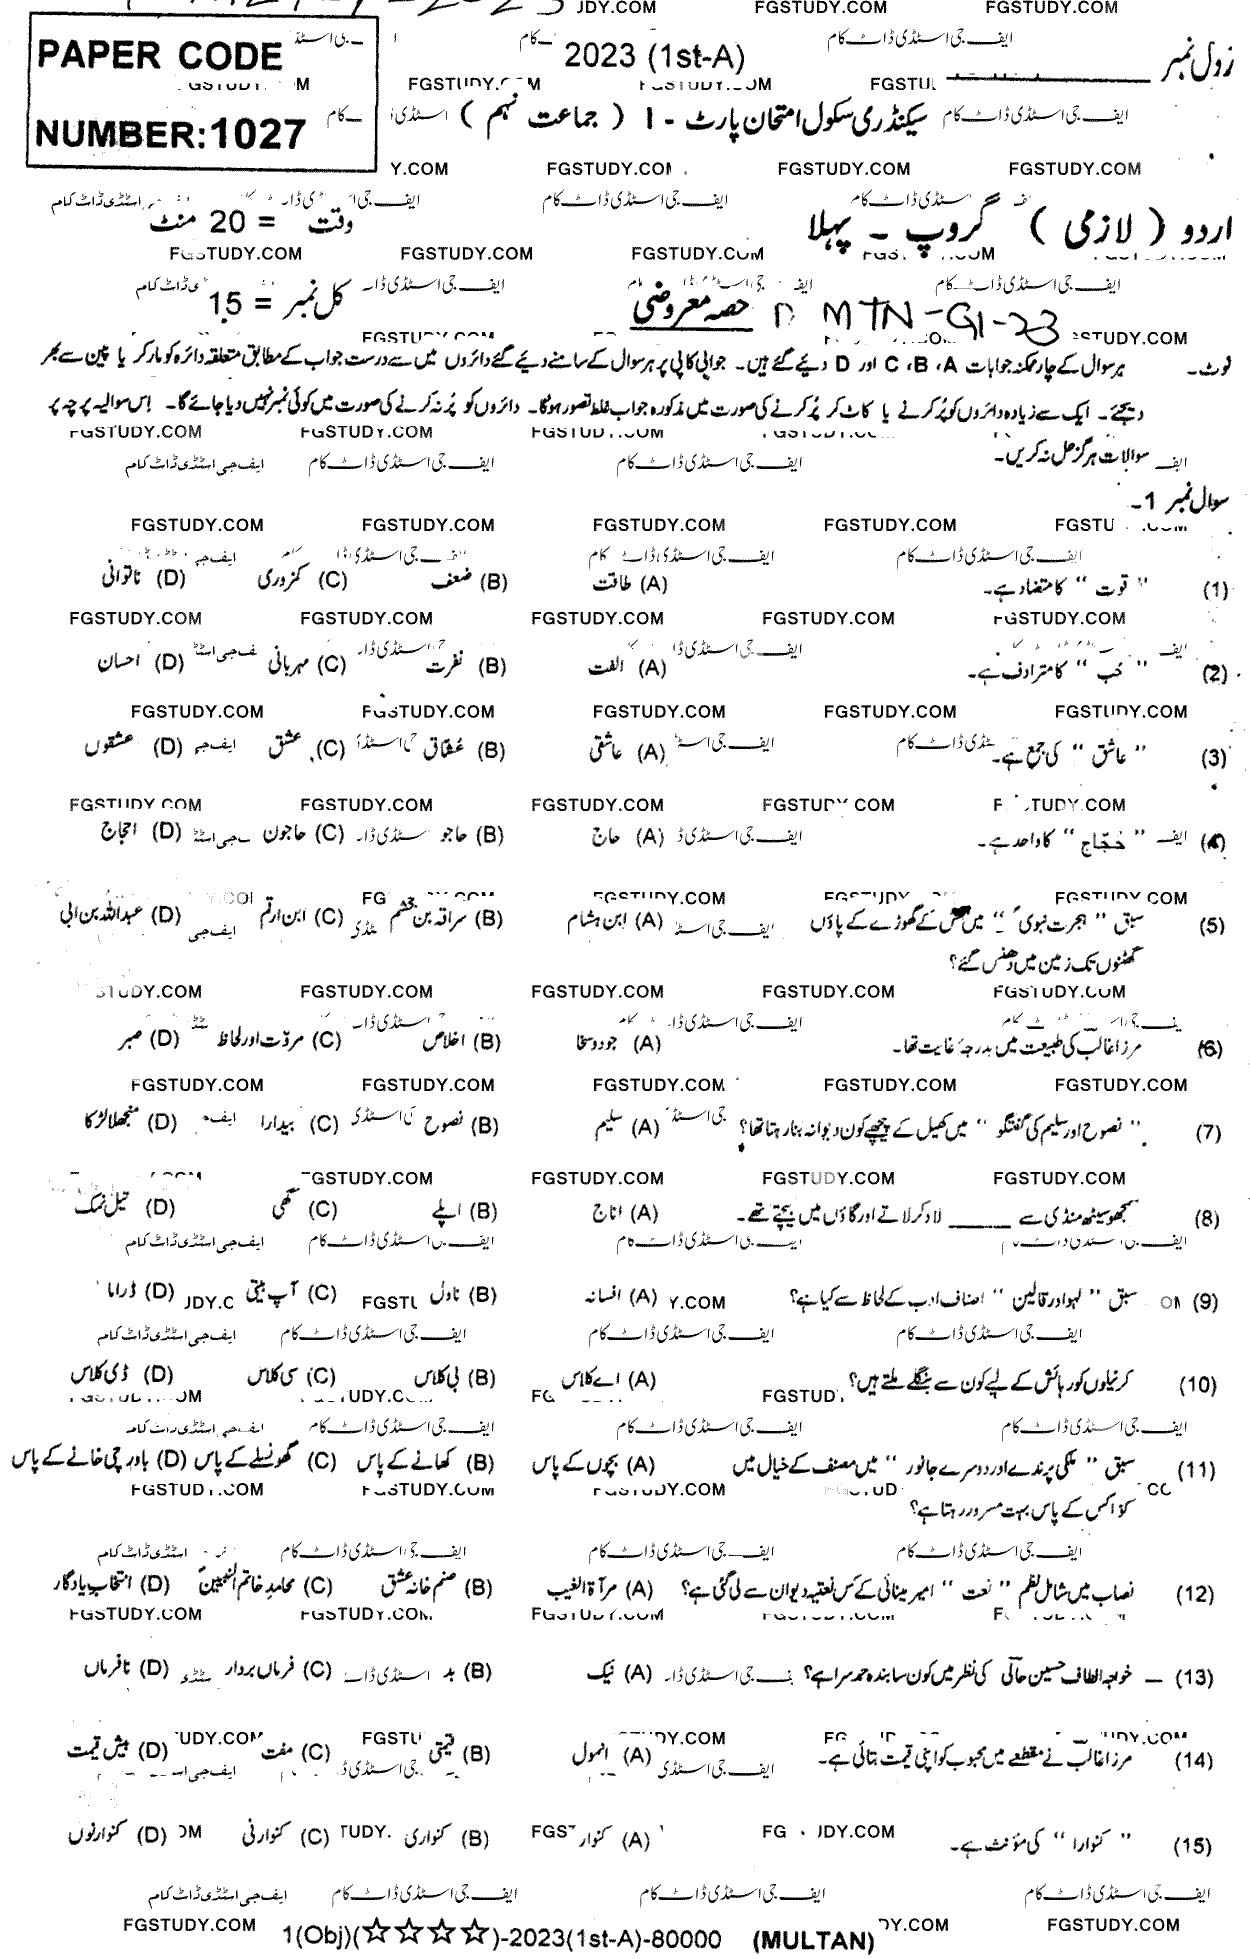 2023 (1st-A)
رول نمبر
PAPER CODE
NUMBER:1027
سیکنڈری سکول امتحان پارٹ - I ( جماعت نہم )
اردو ( لازمی ) گروپ ۔ پہلا
وقت = 20 منٹ
حصہ معروضی MTN-G1-23
کل نمبر = 15
نوٹ۔ ہر سوال کے چار ممکنہ جوابات A، B، C اور D دیئے گئے ہیں۔ جوابی کاپی پر ہر سوال کے سامنے دیئے گئے دائروں میں سے درست جواب کے مطابق متعلقہ دائرہ کو مارکر یا پین سے بھر
دیجئے۔ ایک سے زیادہ دائروں کو پُر کرنے یا کاٹ کر پُر کرنے کی صورت میں مذکورہ جواب غلط تصور ہوگا۔ دائروں کو پُر نہ کرنے کی صورت میں کوئی نمبر نہیں دیا جائے گا۔ اِس سوالیہ پرچہ پر
سوالات ہرگز حل نہ کریں۔
سوال نمبر 1۔
(1) " قوت " کا متضاد ہے۔ (A) طاقت (B) ضعف (C) کمزوری (D) ناتوانی
(2) " حُب " کا مترادف ہے۔ (A) الفت (B) نفرت (C) مہربانی (D) احسان
(3) " عاشق " کی جمع ہے۔ (A) عاشقی (B) عُشاق (C) عشق (D) عشقوں
(4) " حُجّاج " کا واحد ہے۔ (A) حاج (B) حاجو (C) حاجون (D) احجاج
(5) سبق " ہجرت نبویؐ " میں کس کے گھوڑے کے پاؤں (A) ابن ہشام (B) سراقہ بن جعشم (C) ابن ارقم (D) عبداللہ بن ابی
گھٹنوں تک زمین میں دھنس گئے؟
(6) مرزا غالب کی طبیعت میں بدرجۂ غایت تھا۔ (A) جود و سخا (B) اخلاص (C) مروّت اور لحاظ (D) صبر
(7) " نصوح اور سلیم کی گفتگو " میں کھیل کے پیچھے کون دیوانہ بنا رہتا تھا؟ (A) سلیم (B) نصوح (C) بیدارا (D) منجھلا لڑکا
(8) سمجھو سیٹھ منڈی سے ______ لاد کر لاتے اور گاؤں میں بیچتے تھے۔ (A) اناج (B) اپلے (C) گھی (D) تیل نمک
(9) سبق " لہو اور قالین " اصناف ادب کے لحاظ سے کیا ہے؟ (A) افسانہ (B) ناول (C) آپ بیتی (D) ڈراما
(10) کرنیلوں کو رہائش کے لیے کون سے بنگلے ملتے ہیں؟ (A) اے کلاس (B) بی کلاس (C) سی کلاس (D) ڈی کلاس
(11) سبق " ملکی پرندے اور دوسرے جانور " میں مصنف کے خیال میں (A) بچوں کے پاس (B) کھانے کے پاس (C) گھونسلے کے پاس (D) باورچی خانے کے پاس
کوّا کس کے پاس بہت مسرور رہتا ہے؟
(12) نصاب میں شامل نظم " نعت " امیر مینائی کے کس نعتیہ دیوان سے لی گئی ہے؟ (A) مرآۃ الغیب (B) صنم خانہ عشق (C) محامدِ خاتم النبیینؐ (D) انتخاب یادگار
(13) خواجہ الطاف حسین حالی کی نظر میں کون سا بندہ حمد سرا ہے؟ (A) نیک (B) بد (C) فرماں بردار (D) نافرماں
(14) مرزا غالب نے مقطعے میں محبوب کو اپنی قیمت بتائی ہے۔ (A) انمول (B) قیمتی (C) مفت (D) بیش قیمت
(15) " کنوارا " کی مؤنث ہے۔ (A) کنوار (B) کنواری (C) کنوارنی (D) کنوارنوں
1(Obj)(☆☆☆☆)-2023(1st-A)-80000 (MULTAN)
FGSTUDY.COM
ایف جی اسٹڈی ڈاٹ کام